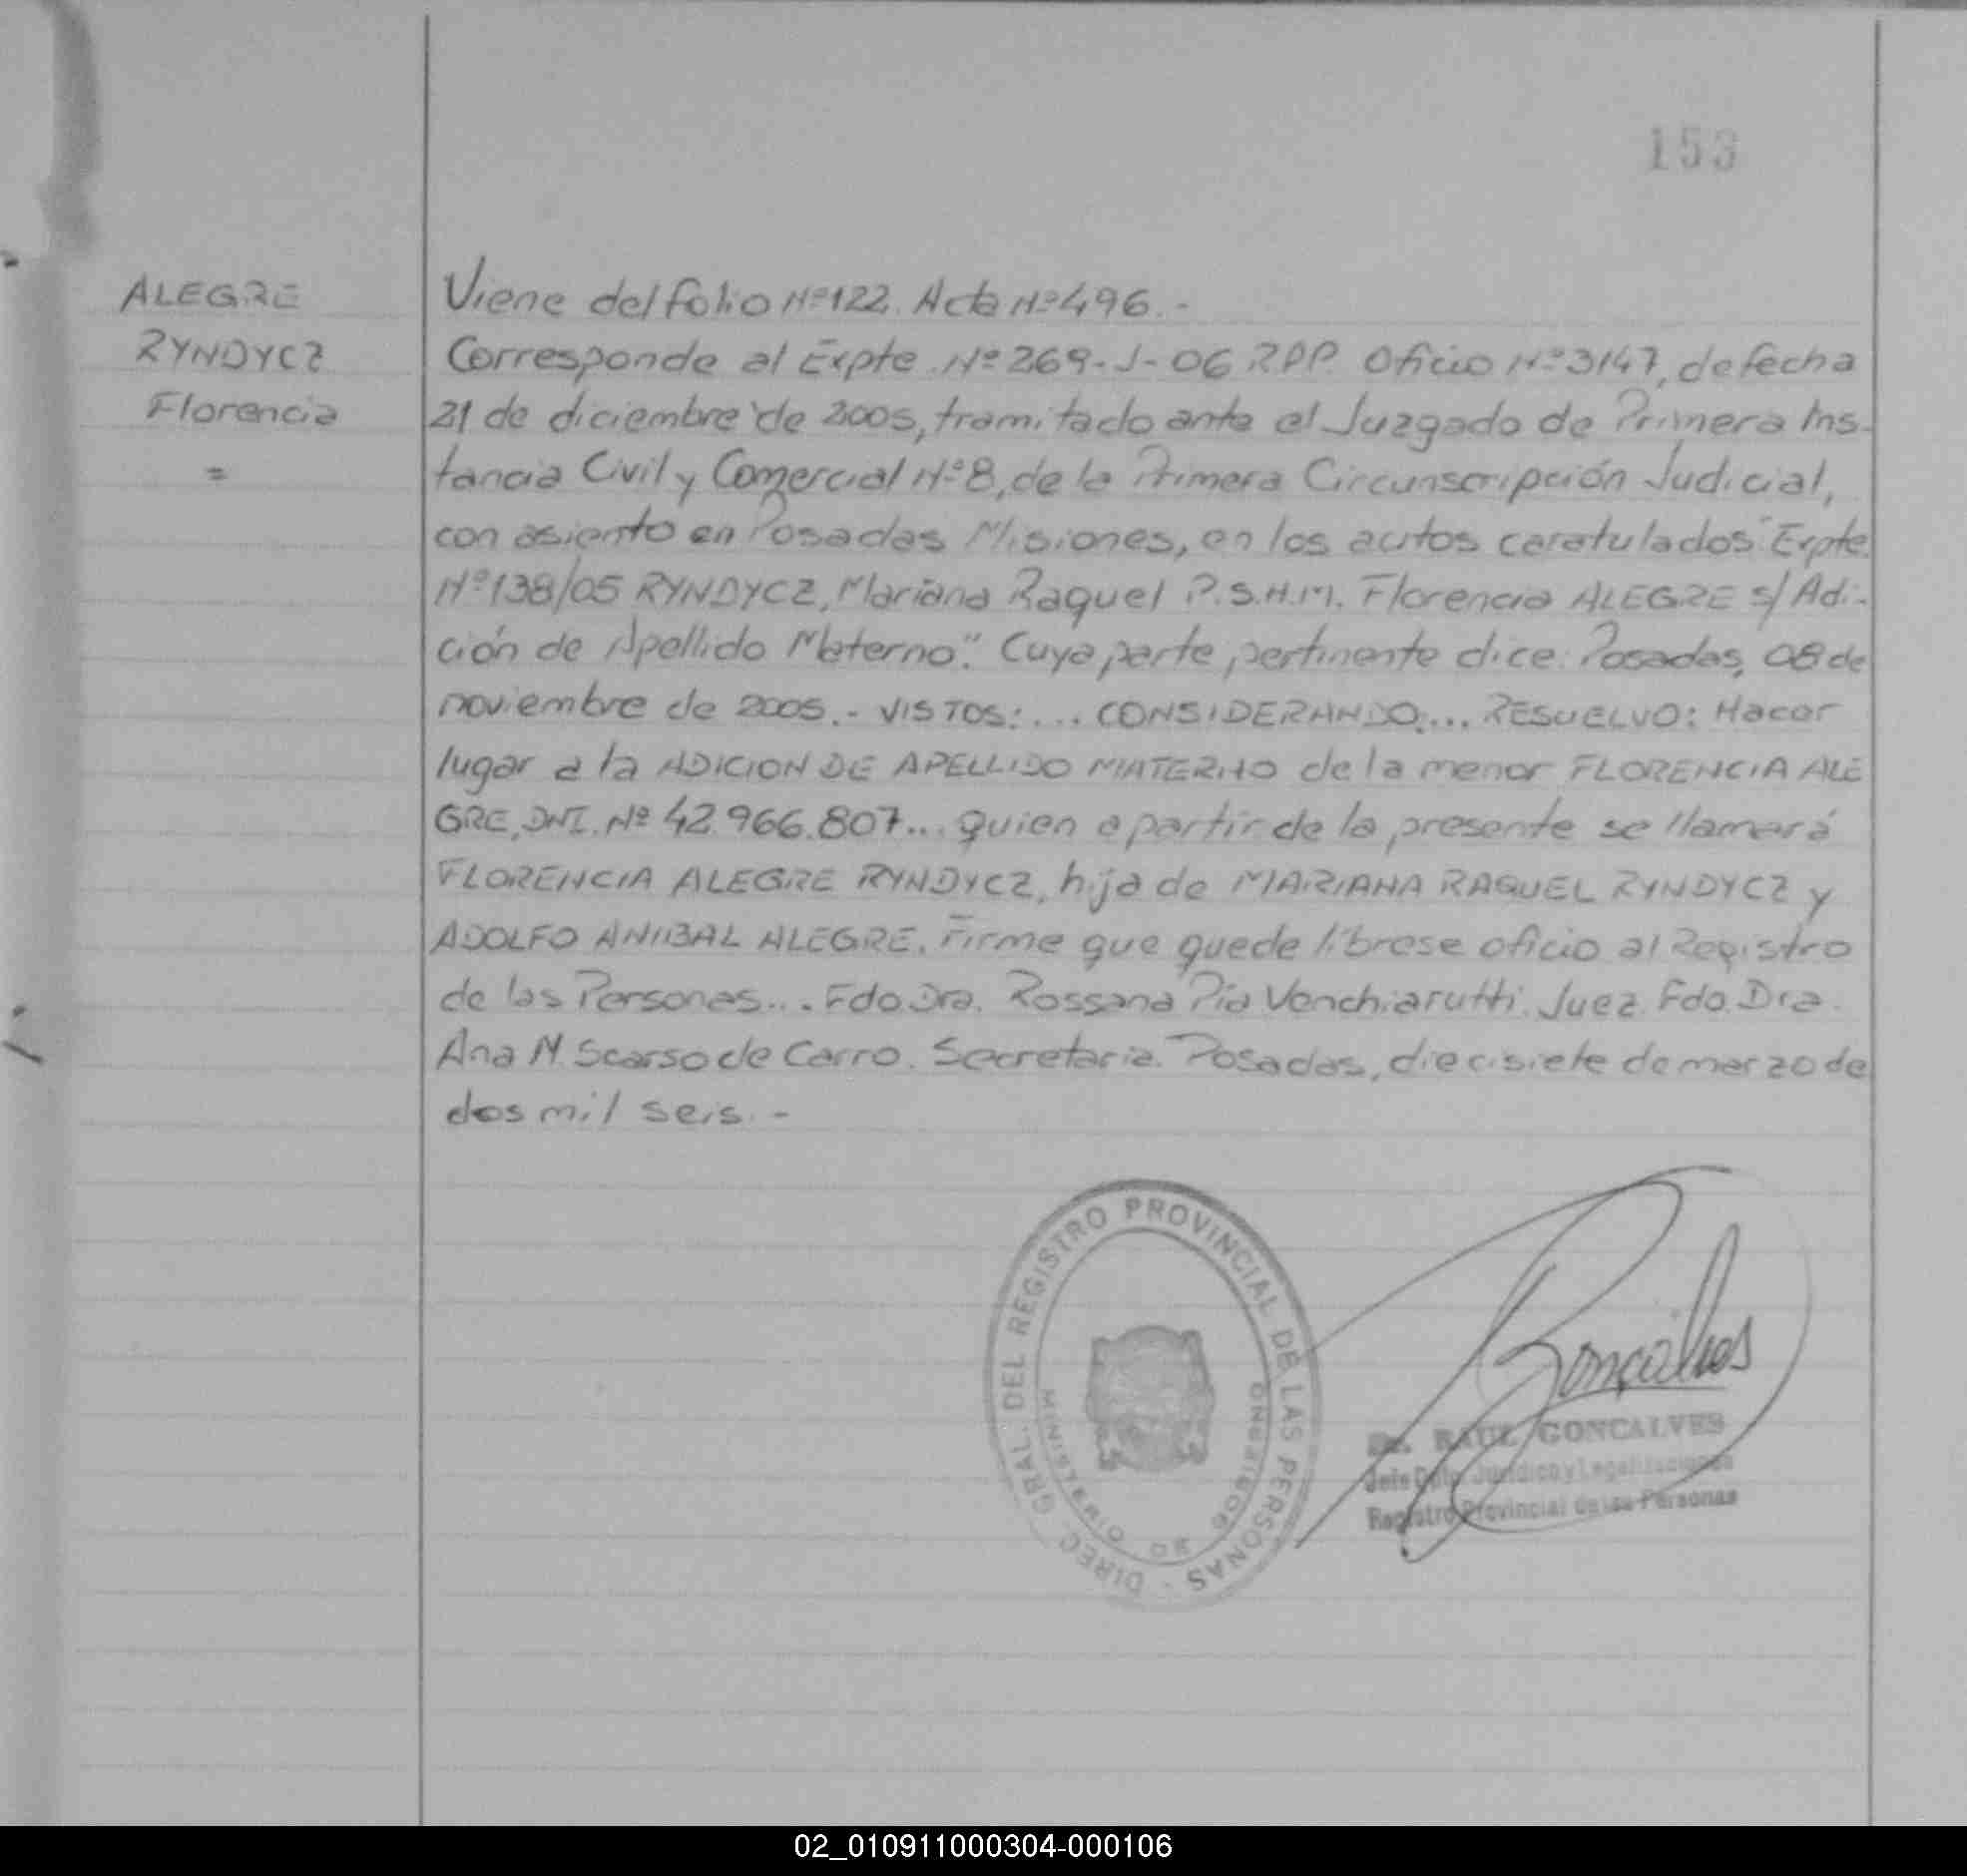 153
ALEGRE
RYNDYCZ
Florencia
=
Viene del folio Nº122. Acta Nº496.-
Corresponde al Expte. Nº 269-J-06 RPP. Oficio Nº3147, de fecha
21 de diciembre de 2005, tramitado ante el Juzgado de Primera Ins-
tancia Civil y Comercial Nº8, de la Primera Circunscripción Judicial,
con asiento en Posadas Misiones, en los autos caratulados "Expte.
Nº138/05 RYNDYCZ, Mariana Raquel P.S.H.M. Florencia ALEGRE s/ Adi-
ción de Apellido Materno". Cuya parte pertinente dice: Posadas, 08 de
noviembre de 2005.- VISTOS:... CONSIDERANDO:... RESUELVO: Hacer
lugar a la ADICION DE APELLIDO MATERNO de la menor FLORENCIA ALE
GRE, DNI. Nº 42.966.807... quien a partir de la presente se llamará
FLORENCIA ALEGRE RYNDYCZ, hija de MARIANA RAQUEL RYNDYCZ y
ADOLFO ANIBAL ALEGRE. Firme que quede líbrese oficio al Registro
de las Personas... Fdo. Dra. Rossana Pía Venchiarutti. Juez. Fdo. Dra.
Ana M. Scarso de Carro. Secretaria. Posadas, diecisiete de marzo de
dos mil seis.-
DIREC. GRAL. DEL REGISTRO PROVINCIAL DE LAS PERSONAS -
MINISTERIO DE GOBIERNO
Goncalves
Dr. RAUL GONCALVES
Jefe Dpto. Jurídico y Legalizaciones
Registro Provincial de las Personas
02_010911000304-000106